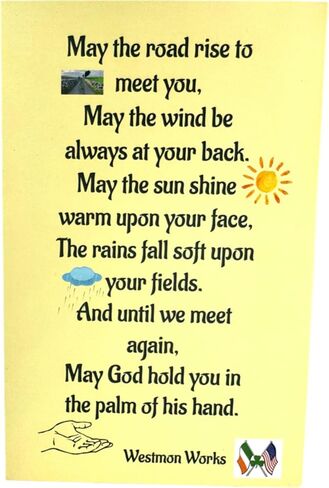 May the road rise to
meet you,
May the wind be
always at your back.
May the sun shine
warm upon your face,
The rains fall soft upon
your fields.
And until we meet
again,
May God hold you in
the palm of his hand.
Westmon Works